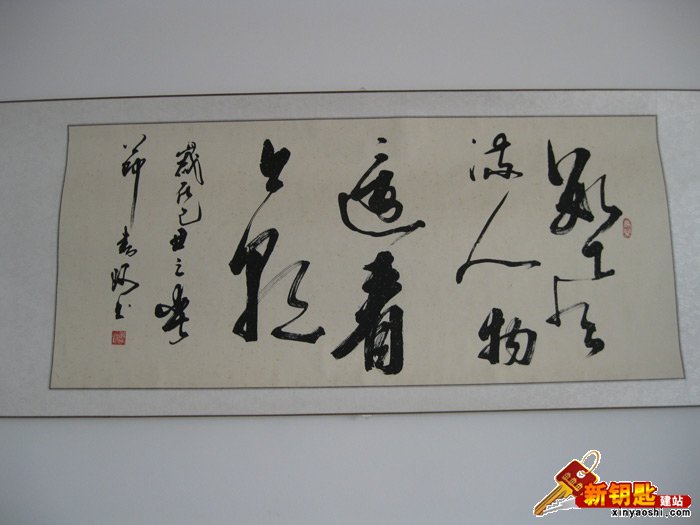 數風
流人物
還看
今朝
歲在己丑之春
书
新钥匙建站
xinyaoshi.com